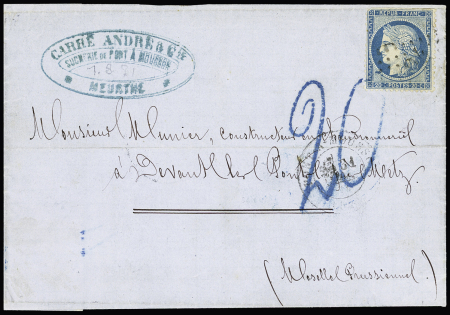 CARRÉ ANDRÉ & Cie
SUCRERIE DE PONT À MOUSSON
MEURTHE
REPUB. FRANC.
POSTES
20
Monsieur Munier, constructeur en chaudronnerie
à Devant les Ponts Metz
(Moselle Prussienne)